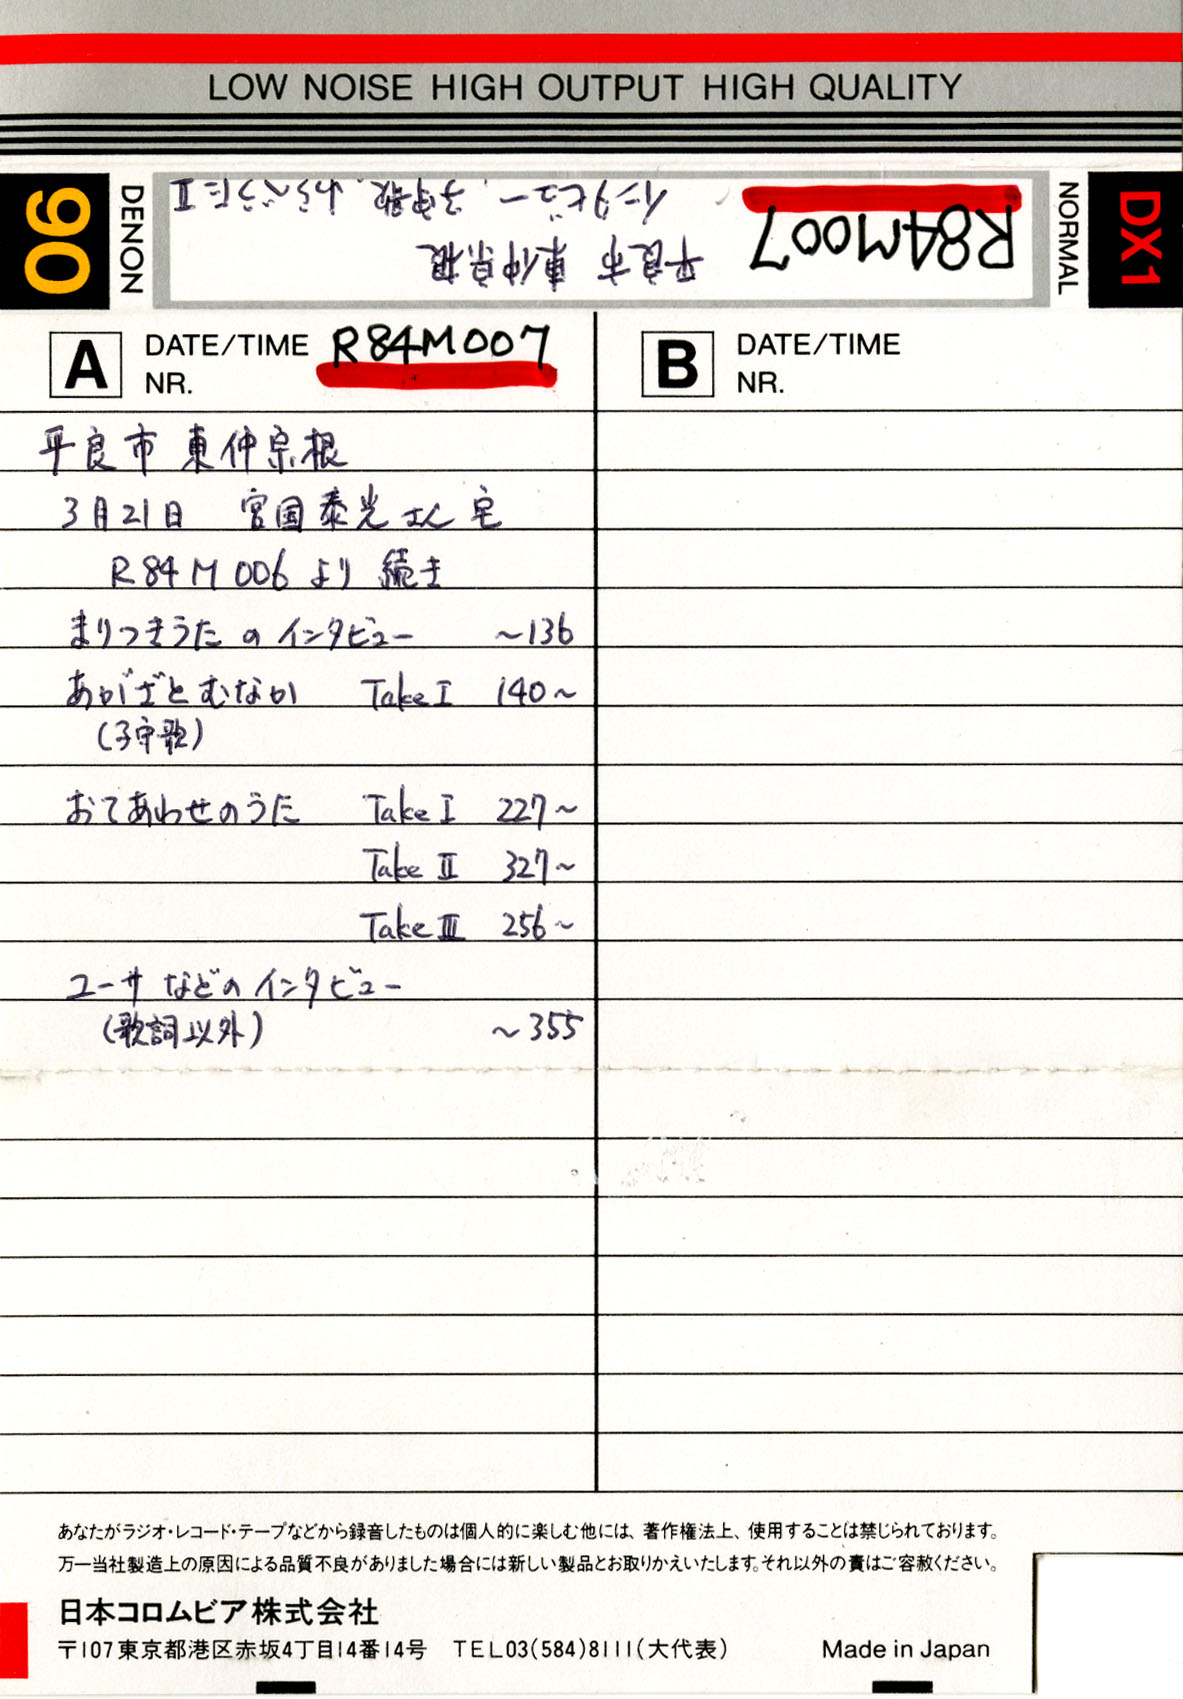 LOW NOISE HIGH OUTPUT HIGH QUALITY
90
DENON
R84M007
平良市 東仲宗根
インタビュー、子守歌、わらべうたⅡ
NORMAL
DX1
A DATE/TIME R84M007
NR.
B DATE/TIME
NR.
平良市 東仲宗根
3月21日 宮国泰光さん宅
R84M006より続き
まりつきうたのインタビュー ～136
あがざとむなか Take I 140～
(子守歌)
おてあわせのうた Take I 227～
Take Ⅱ 327～
Take Ⅲ 256～
ユーサなどのインタビュー
(歌詞以外) ～355
あなたがラジオ・レコード・テープなどから録音したものは個人的に楽しむ他には、著作権法上、使用することは禁じられております。
万一当社製造上の原因による品質不良がありました場合には新しい製品とお取りかえいたします。それ以外の責はご容赦ください。
日本コロムビア株式会社
〒107東京都港区赤坂4丁目14番14号 TEL03(584)8111(大代表) Made in Japan